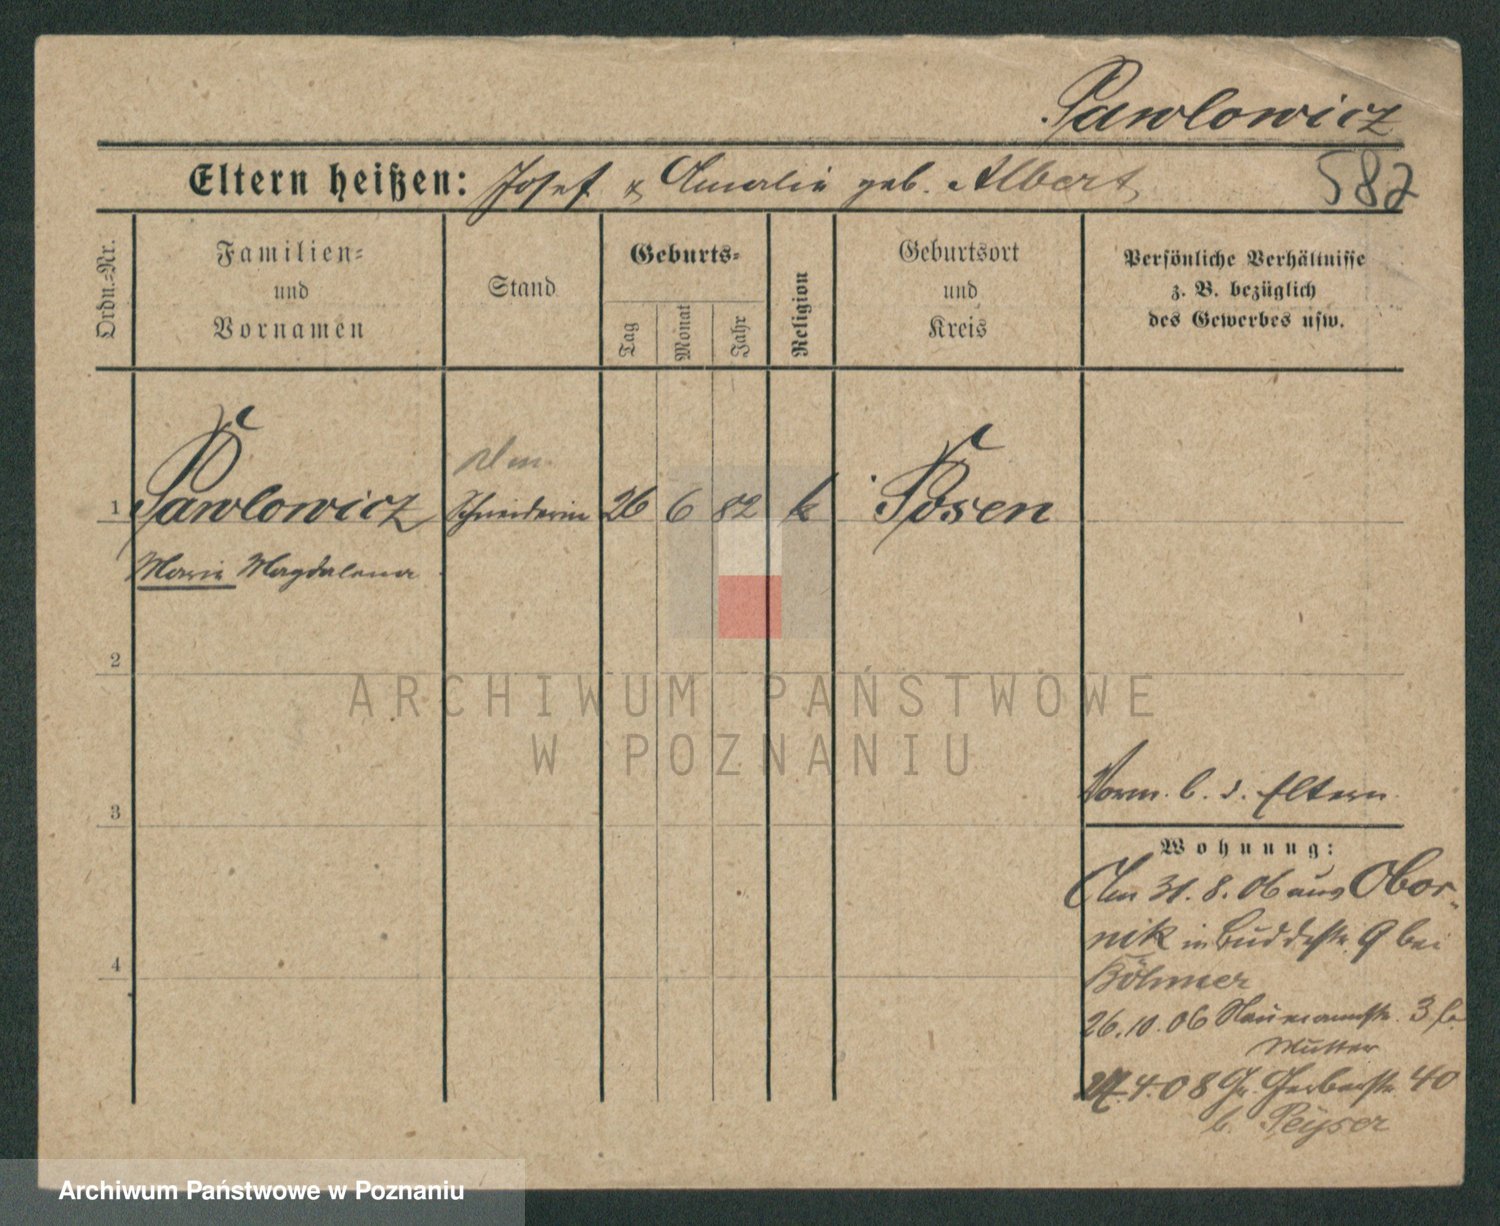 Pawlowicz
Eltern heißen: Josef & Amalie geb. Albert
582
Ordn.=Nr.
Familien=
und
Vornamen
Stand
Geburts=
Tag
Monat
Jahr
Religion
Geburtsort
und
Kreis
Persönliche Verhältnisse
z. B. bezüglich
des Gewerbes usw.
1 Pawlowicz Schneiderin 26 6 82 k Posen
Marie Magdalena
2
ARCHIWUM PAŃSTWOWE
W POZNANIU
Vorm. b. d. Eltern
3
Wohnung:
Am 31.8.06 aus Obor-
nik in Buddestr. 9 bei
Böhmer
4
26.10.06 Naumannstr. 3 b.
Mutter
4.08 Gr. Gerberstr. 40
b. Peyser
Archiwum Państwowe w Poznaniu